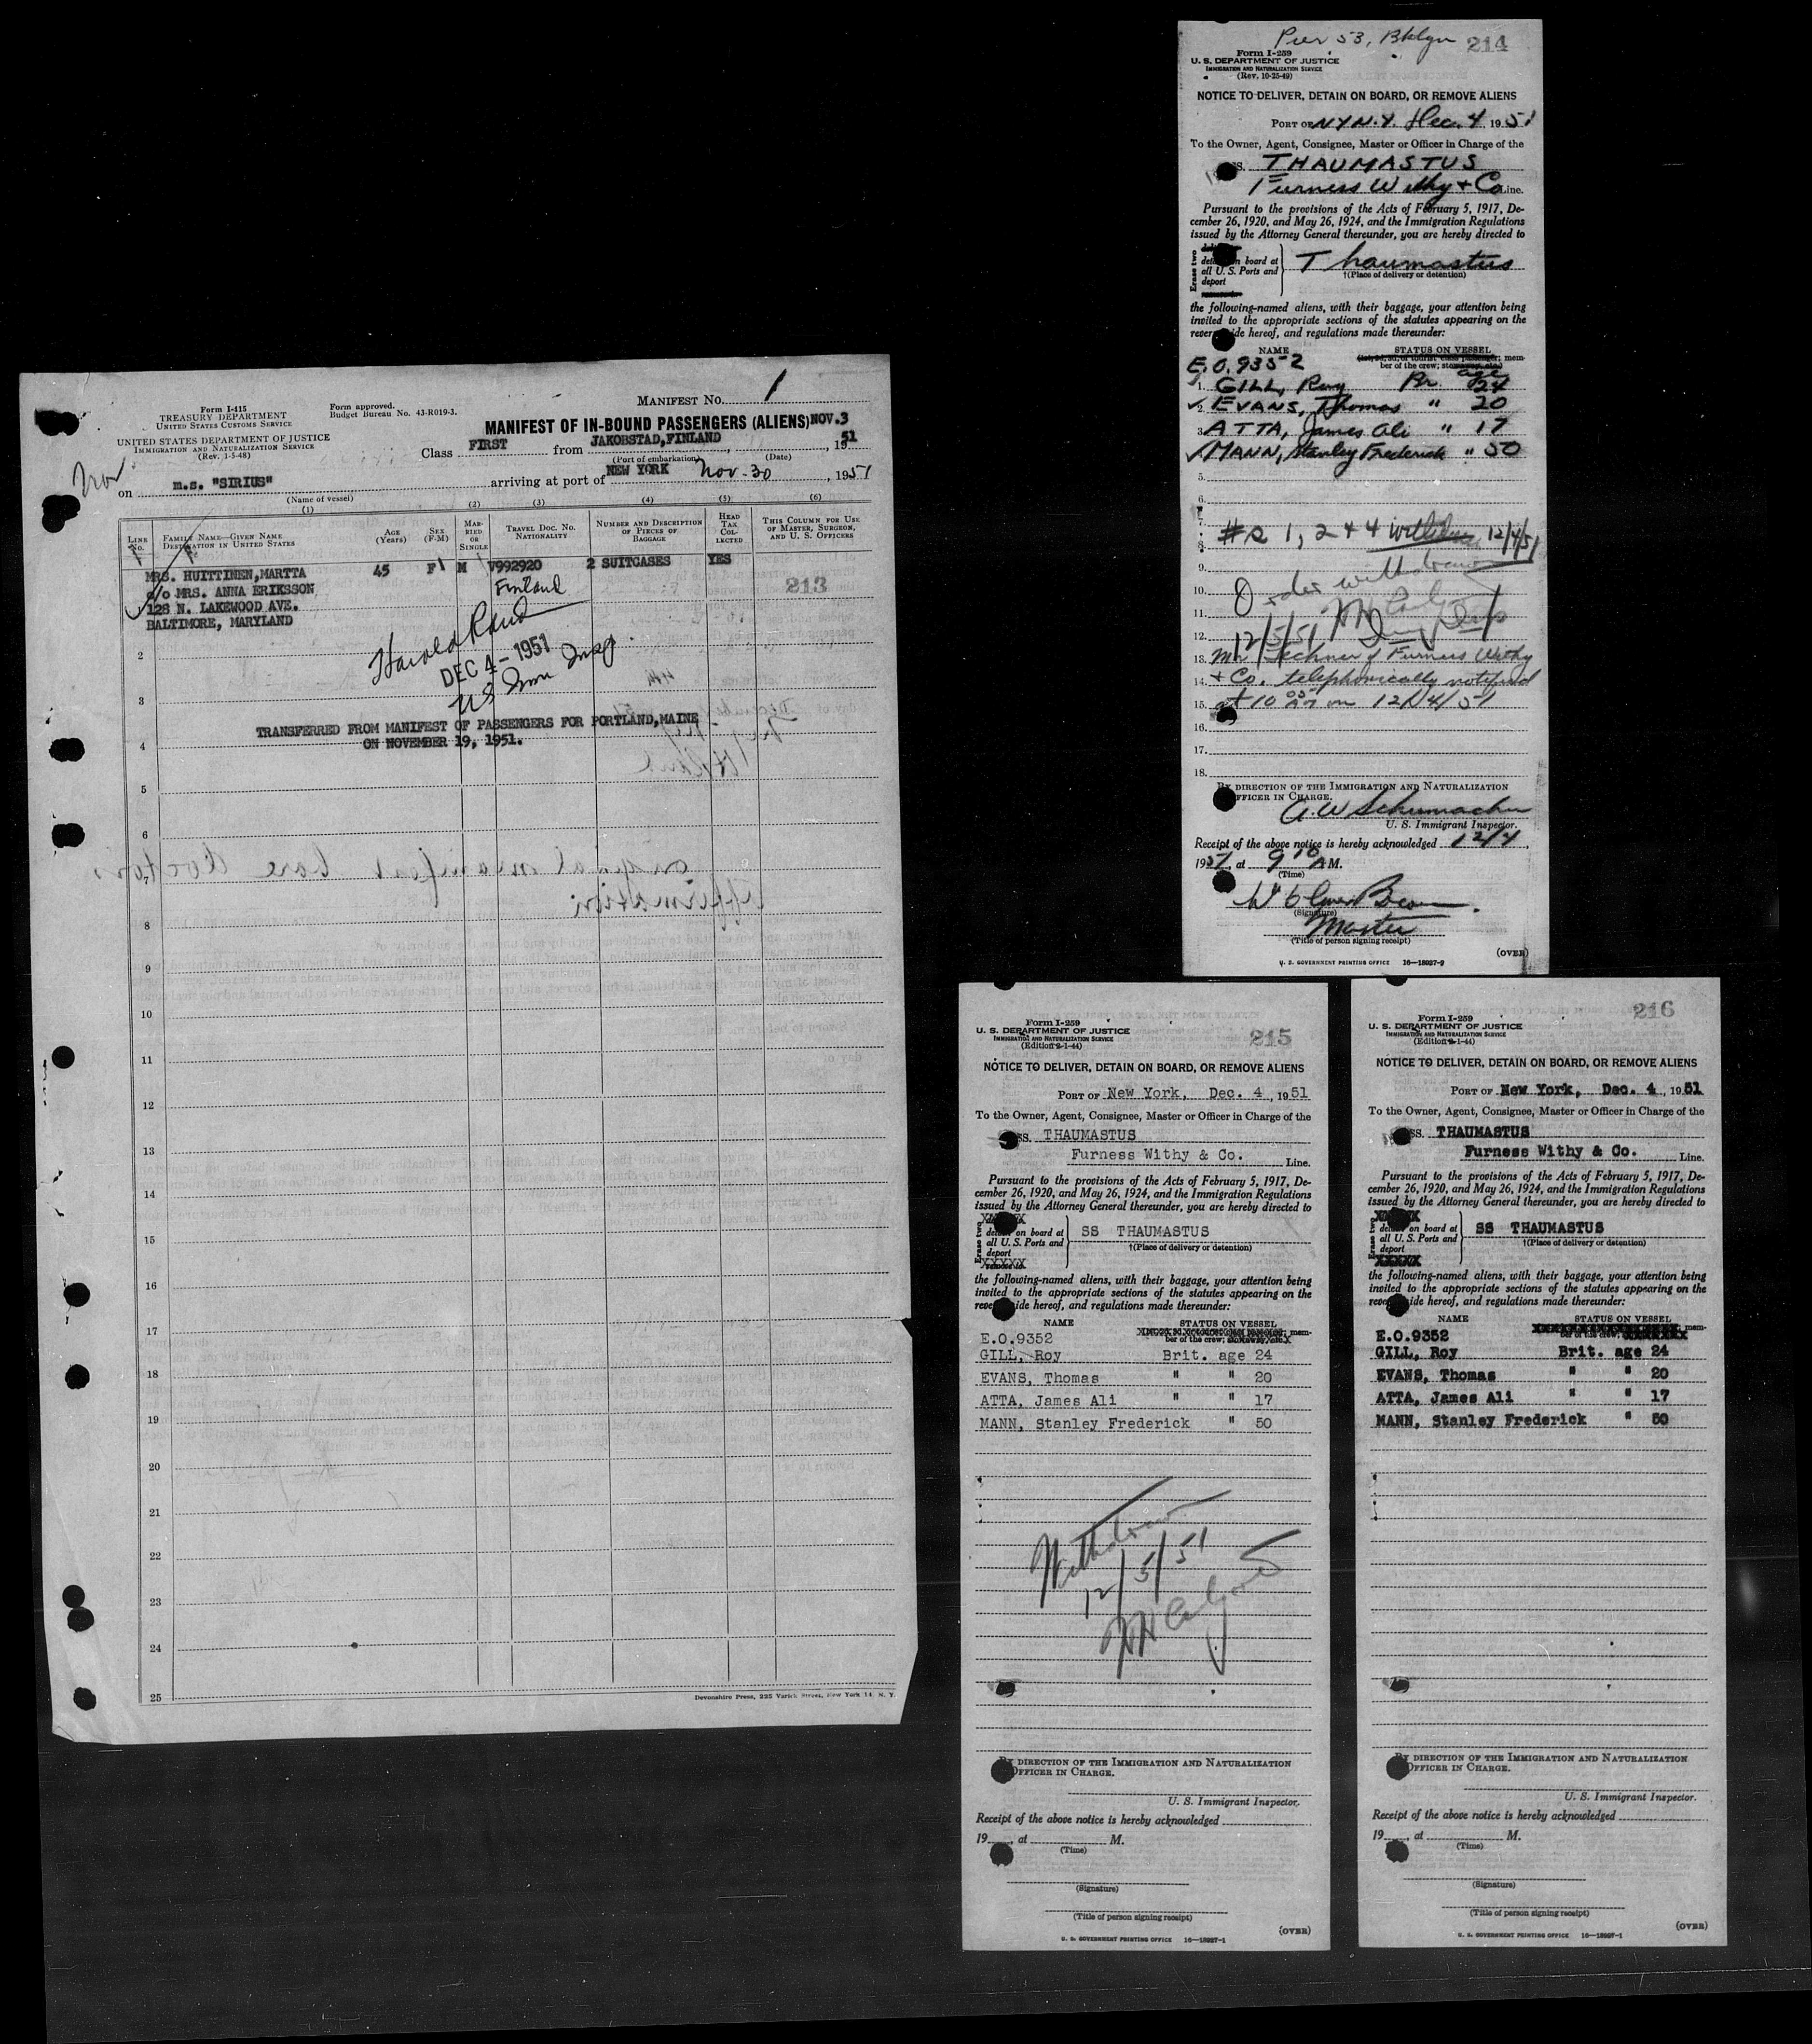 Form I-415
TREASURY DEPARTMENT
UNITED STATES CUSTOMS SERVICE
UNITED STATES DEPARTMENT OF JUSTICE
IMMIGRATION AND NATURALIZATION SERVICE
(Rev. 1-5-48)
Form approved.
Budget Bureau No. 43-R019-3.
MANIFEST NO. 1
MANIFEST OF IN-BOUND PASSENGERS (ALIENS) NOV.3
Class FIRST from JAKOBSTAD,FINLAND, 1951
(Port of embarkation) (Date)
on m.s. "SIRIUS" arriving at port of NEW YORK Nov-30, 1951
(Name of vessel)
(1) (2) (3) (4) (5) (6)
LINE No.
FAMILY NAME—GIVEN NAME
DESTINATION IN UNITED STATES
AGE (YEARS)
SEX (F-M)
MARRIED OR SINGLE
TRAVEL DOC. NO.
NATIONALITY
NUMBER AND DESCRIPTION OF PIECES OF BAGGAGE
HEAD TAX COLLECTED
THIS COLUMN FOR USE OF MASTER, SURGEON, AND U. S. OFFICERS
MRS. HUITTINEN,MARTTA 45 F M V992920 2 SUITCASES YES
c/o MRS. ANNA ERIKSSON Finland 213
128 N. LAKEWOOD AVE.
BALTIMORE, MARYLAND
Harold Rand
DEC 4 - 1951
US Imm Insp.
2
3
TRANSFERRED FROM MANIFEST OF PASSENGERS FOR PORTLAND,MAINE
ON NOVEMBER 19, 1951.
4
5
6
7
8
9
10
11
12
13
14
15
16
17
18
19
20
21
22
23
24
25
Devonshire Press, 225 Varick Street, New York 14, N. Y.
Pier 53, Bklyn 214
Form I-259
U. S. DEPARTMENT OF JUSTICE
IMMIGRATION AND NATURALIZATION SERVICE
(Rev. 10-25-49)
NOTICE TO DELIVER, DETAIN ON BOARD, OR REMOVE ALIENS
PORT OF N Y N.Y. Dec. 4, 1951
To the Owner, Agent, Consignee, Master or Officer in Charge of the
SS. THAUMASTUS
Furness Withy + Co Line.
Pursuant to the provisions of the Acts of February 5, 1917, De-
cember 26, 1920, and May 26, 1924, and the Immigration Regulations
issued by the Attorney General thereunder, you are hereby directed to
Erase two
detain on board at
all U. S. Ports and
deport
Thaumastus
†(Place of delivery or detention)
the following-named aliens, with their baggage, your attention being
invited to the appropriate sections of the statutes appearing on the
reverse side hereof, and regulations made thereunder:
NAME STATUS ON VESSEL
(1st, 2d, 3d, or tourist class passenger; mem-
ber of the crew; stowaway, etc.)
E.O. 9352 age
1. GILL, Roy Br. 24
2. EVANS, Thomas " 20
3. ATTA, James Ali " 17
MANN, Stanley Frederick " 50
5.
6.
7.
8. #s 1, 2 + 4 withdrawn 12/4/51
9.
10. Order withdrawn
11.
12. 12/5/51
13. Mr. Lechner of Furness Withy
14. + Co. telephonically notified
15. at 10 05 AM on 12/4/51
16.
17.
18.
BY DIRECTION OF THE IMMIGRATION AND NATURALIZATION
OFFICER IN CHARGE.
A.W. Schumacher
U. S. Immigrant Inspector.
Receipt of the above notice is hereby acknowledged 12/4,
1951, at 9 10 A M.
(Time)
(Signature)
Master
(Title of person signing receipt)
(OVER)
U. S. GOVERNMENT PRINTING OFFICE 16—18027-2
215
Form I-259
U. S. DEPARTMENT OF JUSTICE
IMMIGRATION AND NATURALIZATION SERVICE
(Edition 2-1-44)
NOTICE TO DELIVER, DETAIN ON BOARD, OR REMOVE ALIENS
PORT OF New York, Dec. 4, 1951
To the Owner, Agent, Consignee, Master or Officer in Charge of the
SS. THAUMASTUS
Furness Withy & Co. Line.
Pursuant to the provisions of the Acts of February 5, 1917, De-
cember 26, 1920, and May 26, 1924, and the Immigration Regulations
issued by the Attorney General thereunder, you are hereby directed to
Erase two
detain on board at
all U. S. Ports and
deport
remove to
SS THAUMASTUS
†(Place of delivery or detention)
the following-named aliens, with their baggage, your attention being
invited to the appropriate sections of the statutes appearing on the
reverse side hereof, and regulations made thereunder:
NAME STATUS ON VESSEL
mem-
E.O.9352 ber of the crew; stowaway, etc.)
GILL, Roy Brit. age 24
EVANS, Thomas " " 20
ATTA, James Ali " " 17
MANN, Stanley Frederick " 50
Withdrawn
12/5/51
BY DIRECTION OF THE IMMIGRATION AND NATURALIZATION
OFFICER IN CHARGE.
U. S. Immigrant Inspector.
Receipt of the above notice is hereby acknowledged
19, at M.
(Time)
(Signature)
(Title of person signing receipt)
(OVER)
U. S. GOVERNMENT PRINTING OFFICE 16—18027-1
216
Form I-259
U. S. DEPARTMENT OF JUSTICE
IMMIGRATION AND NATURALIZATION SERVICE
(Edition 2-1-44)
NOTICE TO DELIVER, DETAIN ON BOARD, OR REMOVE ALIENS
PORT OF New York, Dec. 4, 1951
To the Owner, Agent, Consignee, Master or Officer in Charge of the
SS. THAUMASTUS
Furness Withy & Co. Line.
Pursuant to the provisions of the Acts of February 5, 1917, De-
cember 26, 1920, and May 26, 1924, and the Immigration Regulations
issued by the Attorney General thereunder, you are hereby directed to
Erase two
detain on board at
all U. S. Ports and
deport
XXXXX
SS THAUMASTUS
†(Place of delivery or detention)
the following-named aliens, with their baggage, your attention being
invited to the appropriate sections of the statutes appearing on the
reverse side hereof, and regulations made thereunder:
NAME STATUS ON VESSEL
mem-
E.O.9352 ber of the crew;
GILL, Roy Brit. age 24
EVANS, Thomas " " 20
ATTA, James Ali " " 17
MANN, Stanley Frederick " 50
BY DIRECTION OF THE IMMIGRATION AND NATURALIZATION
OFFICER IN CHARGE.
U. S. Immigrant Inspector.
Receipt of the above notice is hereby acknowledged
19, at M.
(Time)
(Signature)
(Title of person signing receipt)
(OVER)
U. S. GOVERNMENT PRINTING OFFICE 16—18027-1